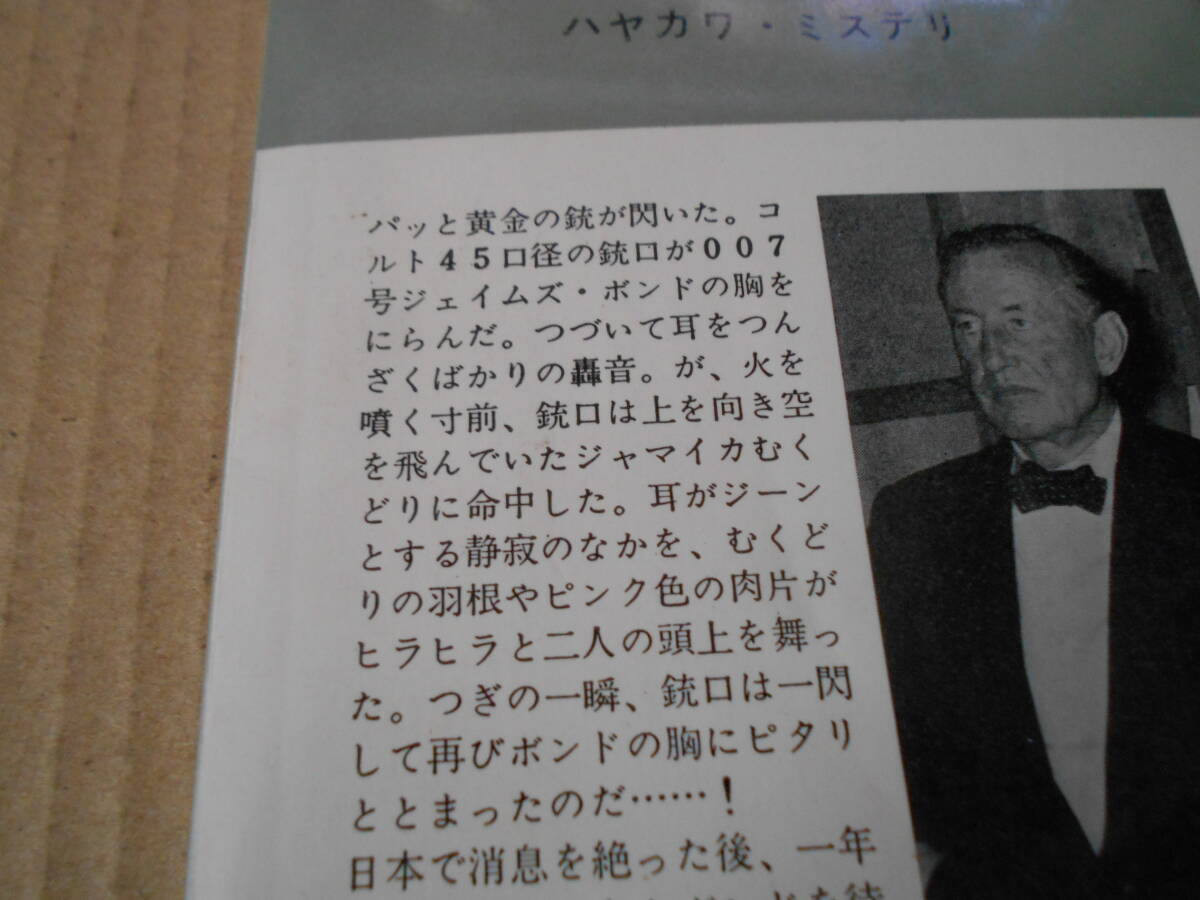 ハヤカワ・ミステリ
パッと黄金の銃が閃いた。コ
ルト４５口径の銃口が００７
号ジェイムズ・ボンドの胸を
にらんだ。つづいて耳をつん
ざくばかりの轟音。が、火を
噴く寸前、銃口は上を向き空
を飛んでいたジャマイカむく
どりに命中した。耳がジーン
とする静寂のなかを、むくど
りの羽根やピンク色の肉片が
ヒラヒラと二人の頭上を舞っ
た。つぎの一瞬、銃口は一閃
して再びボンドの胸にピタリ
ととまったのだ……！
日本で消息を絶った後、一年